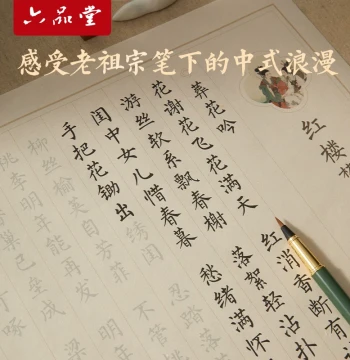 六品堂
感受老祖宗笔下的中式浪漫
红楼
葬花吟
花谢花飞花满天
红消香断有
游丝软系飘春榭
落絮轻沾扑
闺中女儿惜春暮
愁绪满怀
手把花锄出绣闺
忍踏落
柳丝榆荚自芳菲
不管
桃李明年能再发
明年